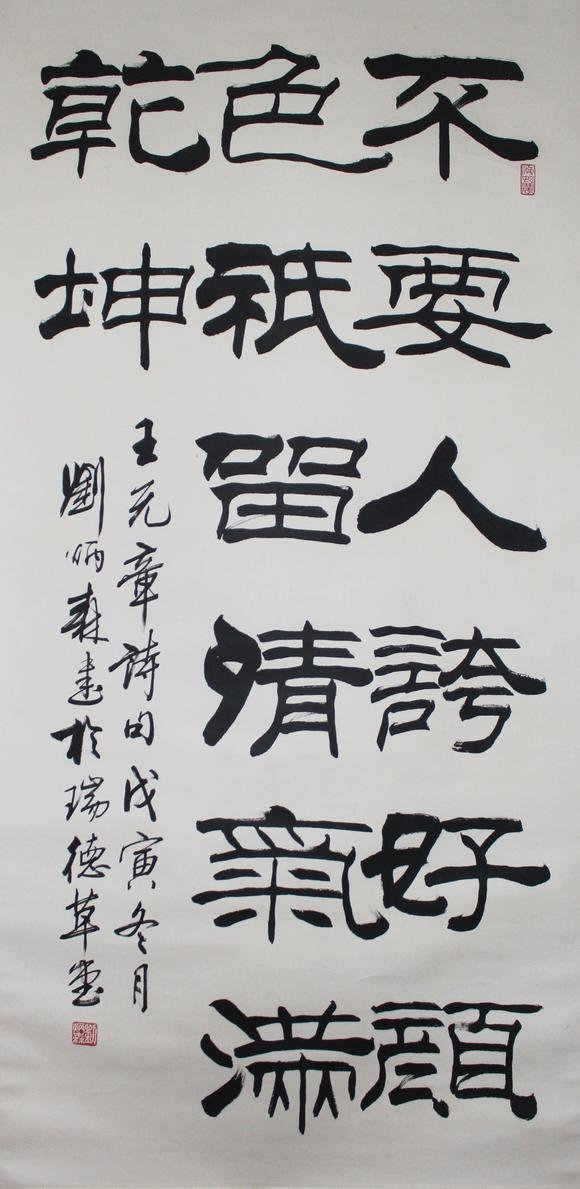 不要人誇好顏
色祇留晴氣滿
乾坤
王元章詩句戊寅冬月
劉炳森書於瑞德草堂